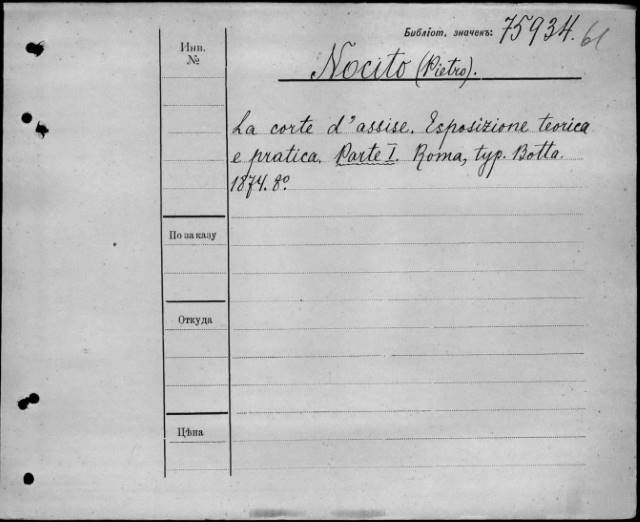 Библіот. значекъ: 75934. 61
Инв.
№
Nocito (Pietro).
La corte d'assise. Esposizione teorica
e pratica. Parte I. Roma, typ. Botta.
1874. 8º
По заказу
Откуда
Цѣна